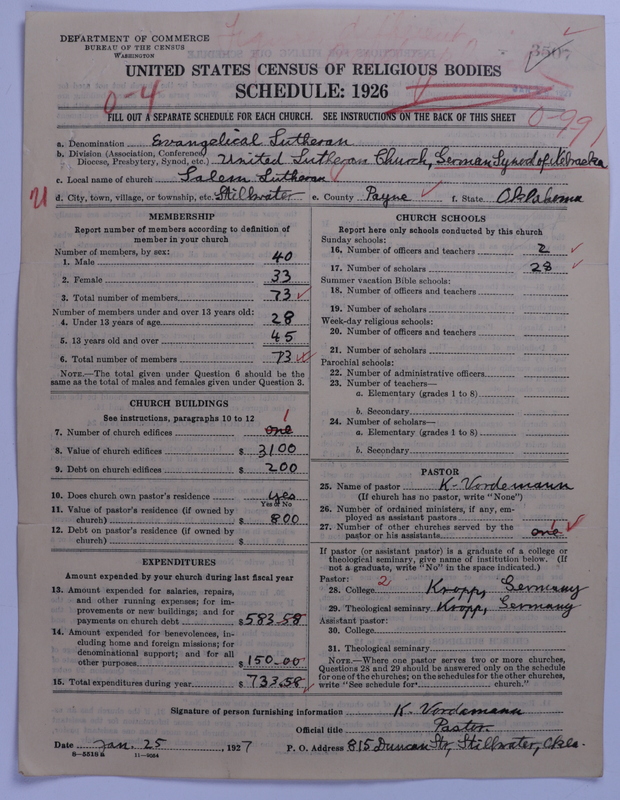 DEPARTMENT OF COMMERCE
BUREAU OF THE CENSUS
WASHINGTON
3507
UNITED STATES CENSUS OF RELIGIOUS BODIES
SCHEDULE: 1926
0-4
0-99
FILL OUT A SEPARATE SCHEDULE FOR EACH CHURCH. SEE INSTRUCTIONS ON THE BACK OF THIS SHEET
a. Denomination Evangelical Lutheran
b. Division (Association, Conference,
Diocese, Presbytery, Synod, etc.) United Lutheran Church, German Synod of Nebraska
c. Local name of church Salem Lutheran
d. City, town, village, or township, etc. Stillwater e. County Payne f. State Oklahoma
MEMBERSHIP
Report number of members according to definition of
member in your church
Number of members, by sex:
1. Male 40
2. Female 33
3. Total number of members 73
Number of members under and over 13 years old:
4. Under 13 years of age 28
5. 13 years old and over 45
6. Total number of members 73
NOTE.—The total given under Question 6 should be
the same as the total of males and females given under Question 3.
CHURCH BUILDINGS
See instructions, paragraphs 10 to 12
1
7. Number of church edifices one
8. Value of church edifices $3100
9. Debt on church edifices $200
10. Does church own pastor's residence yes
Yes or No
11. Value of pastor's residence (if owned by
church) $800
12. Debt on pastor's residence (if owned by
church) $
EXPENDITURES
Amount expended by your church during last fiscal year
13. Amount expended for salaries, repairs,
and other running expenses; for im-
provements or new buildings; and for
payments on church debt $583.58
14. Amount expended for benevolences, in-
cluding home and foreign missions; for
denominational support; and for all
other purposes $150.00
15. Total expenditures during year $733.58
CHURCH SCHOOLS
Report here only schools conducted by this church
Sunday schools:
16. Number of officers and teachers 2
17. Number of scholars 28
Summer vacation Bible schools:
18. Number of officers and teachers
19. Number of scholars
Week-day religious schools:
20. Number of officers and teachers
21. Number of scholars
Parochial schools:
22. Number of administrative officers
23. Number of teachers—
a. Elementary (grades 1 to 8)
b. Secondary
24. Number of scholars—
a. Elementary (grades 1 to 8)
b. Secondary
PASTOR
25. Name of pastor K. Vordemann
(If church has no pastor, write "None")
26. Number of ordained ministers, if any, em-
ployed as assistant pastors
27. Number of other churches served by the
pastor or his assistants one 1
If pastor (or assistant pastor) is a graduate of a college or
theological seminary, give name of institution below. (If
not a graduate, write "No" in the space indicated.)
Pastor:
28. College 2 Kropp, Germany
29. Theological seminary Kropp, Germany
Assistant pastor:
30. College
31. Theological seminary
NOTE.—Where one pastor serves two or more churches,
Questions 28 and 29 should be answered only on the schedule
for one of the churches; on the schedules for the other churches,
write "See schedule for church."
Signature of person furnishing information K. Vordemann
Official title Pastor.
Date Jan. 25, 1927 P. O. Address 815 Duncan Str, Stillwater, Okla.
8-5518 a 11-9054